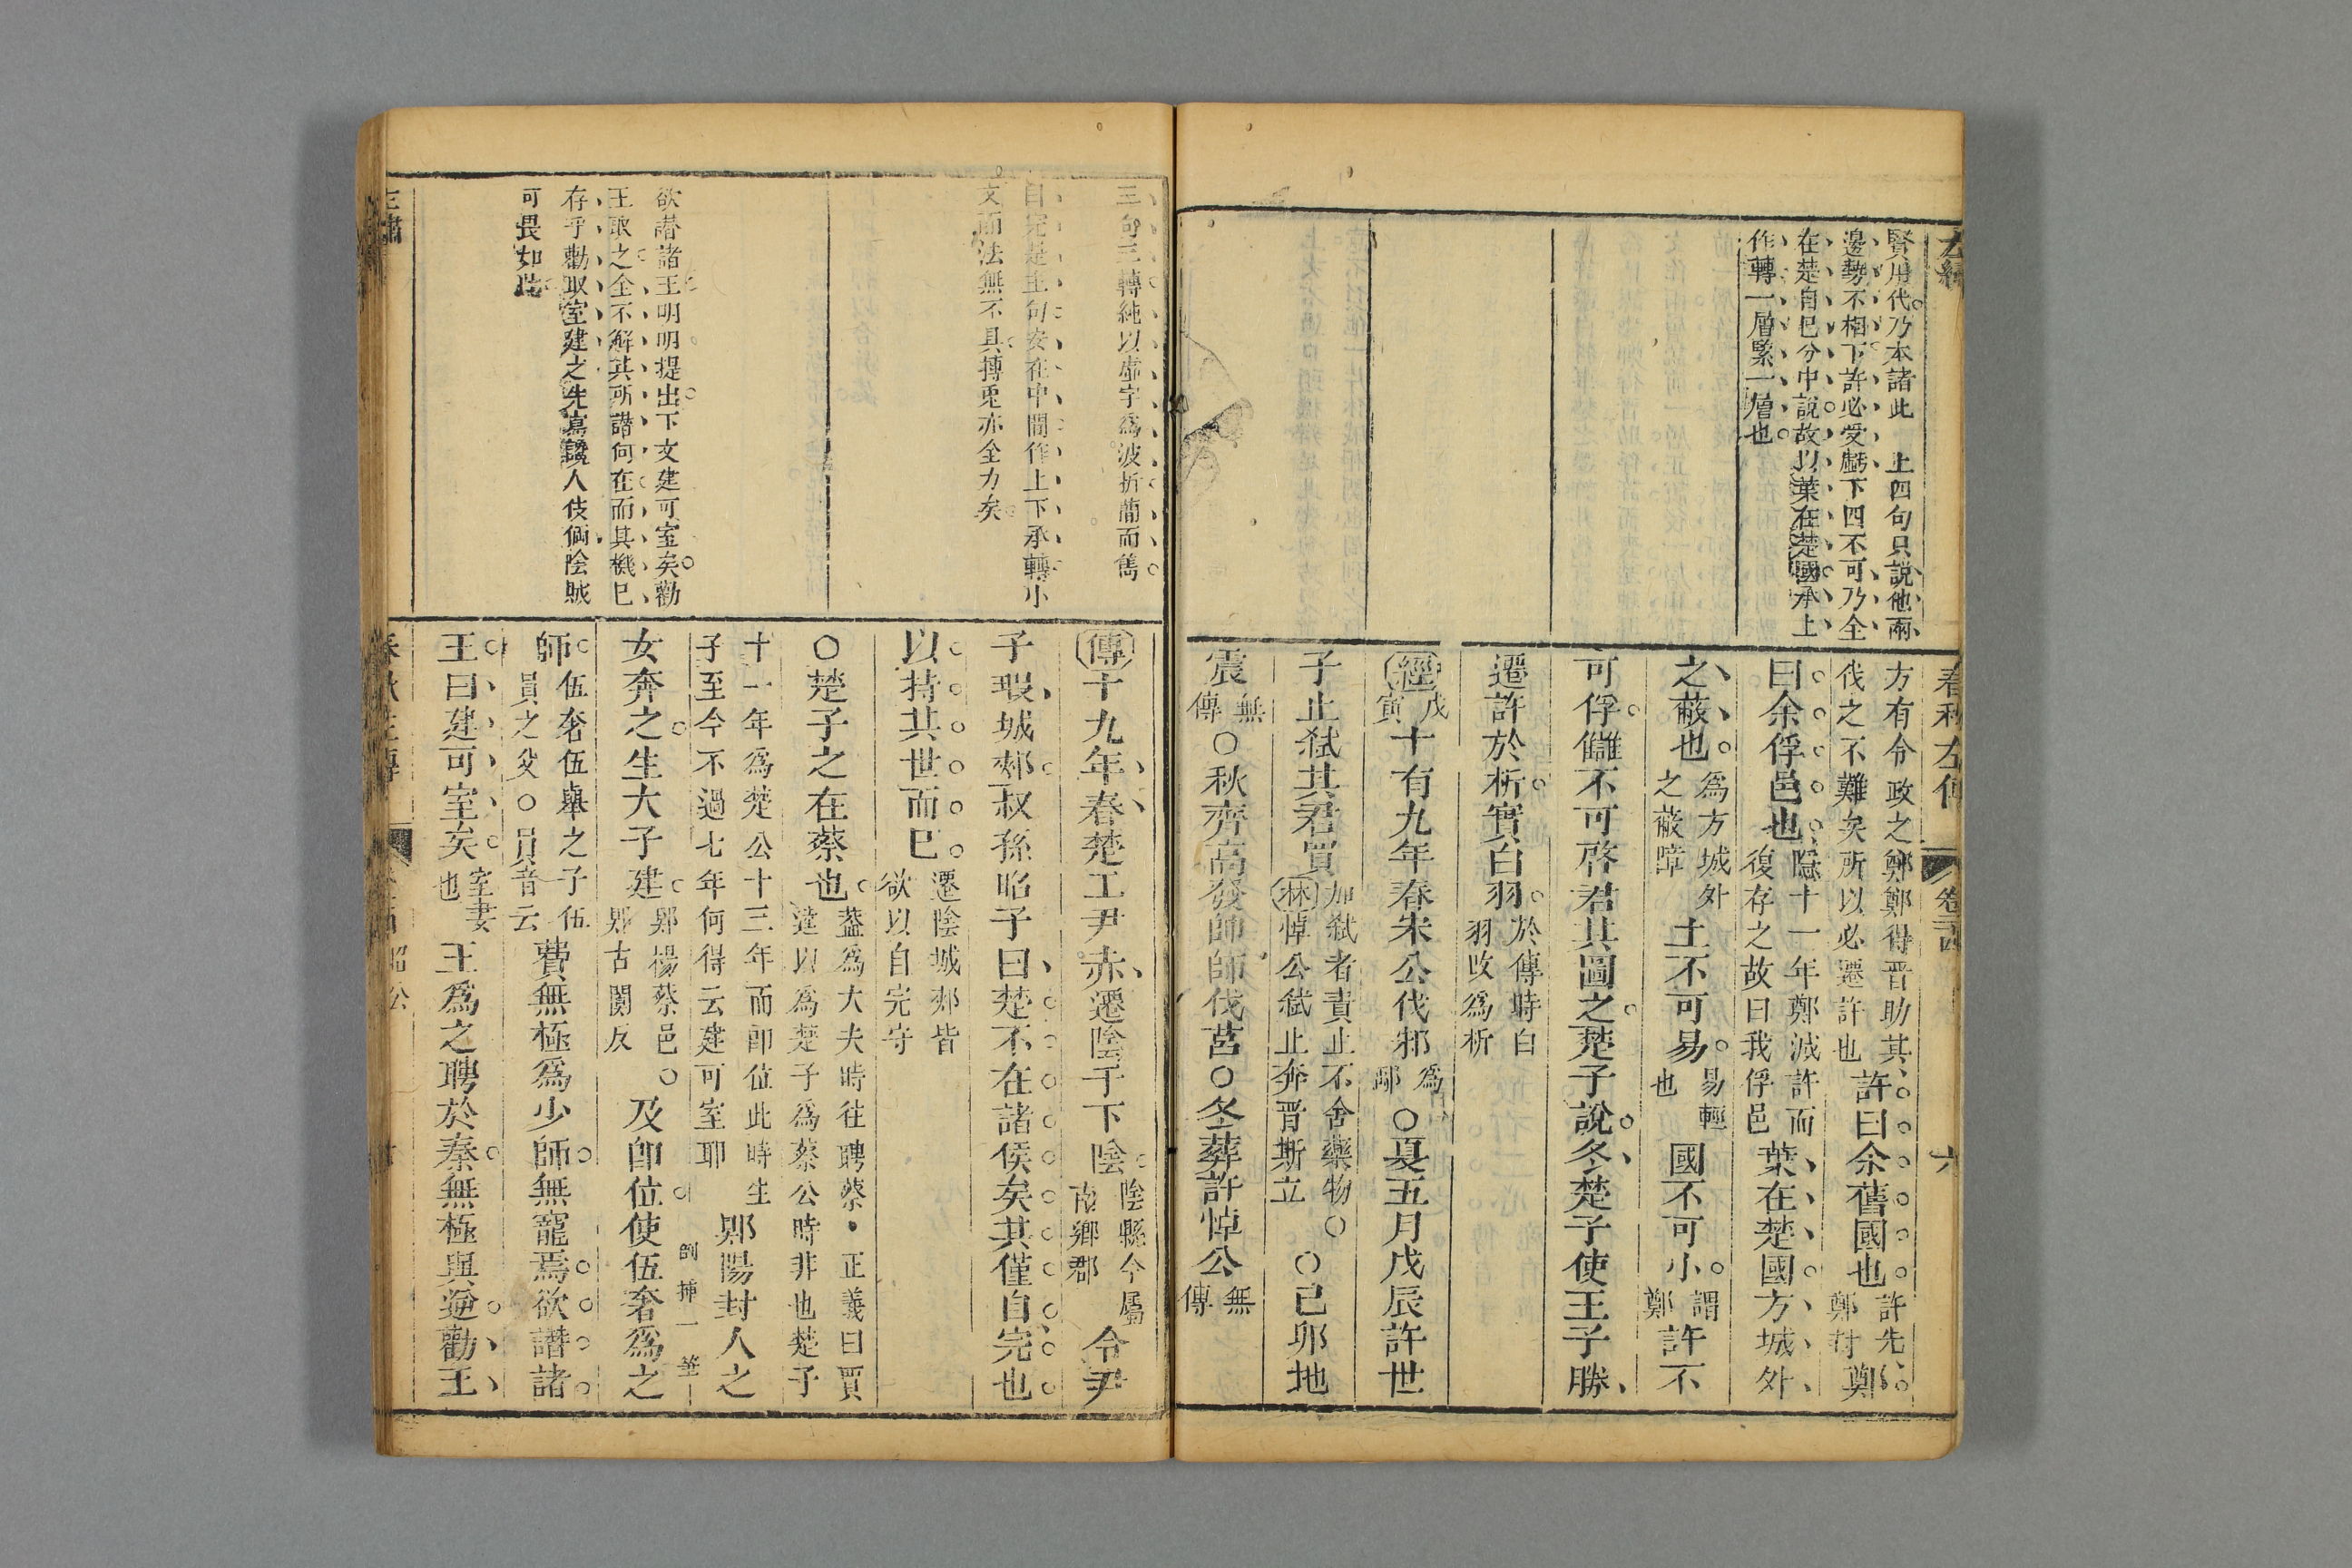 賢用代乃本諸此 上四句只說他兩
邊勢不相下許必受虧下四不可乃全
在楚自巳分中說故以葉在楚國承上
作轉一層緊一層也
春秋左傳
方有令政之鄭鄭得晋助其
伐之不難矣所以必遷許也
許曰余舊國也
許先
鄭封
鄭
曰余俘邑也
隱十一年鄭滅許而
復存之故曰我俘邑
葉在楚國方城外
之蔽也
爲方城外
之蔽障
土不可易
易輕
也
國不可小
謂
鄭
許不
可俘讎不可啓君其圖之楚子說冬楚子使王子勝
遷許於析實白羽
於傳時白
羽改爲析
經
戊
寅
十有九年春宋公伐邾
爲
鄅
○夏五月戊辰許世
子止弒其君買
加弒者責止不舍藥物○
林悼公弒止奔晋斯立
○己卯地
震
無
傳
○秋齊高發帥師伐莒○冬葬許悼公
無
傳
三句三轉純以虛字爲波折簡而雋
自完是主句安在中間作上下承轉小
文而法無不具搏兎亦全力矣
欲譖諸王明明提出下文建可室矣勸
王取之全不解其所譖何在而其機巳
存乎勸取室建之先寫讒人伎倆陰賊
可畏如此
傳十九年春楚工尹赤遷陰于下陰
陰縣今屬
南鄉郡
令尹
子瑕城郟叔孫昭子曰楚不在諸侯矣其僅自完也
以持其世而巳
遷陰城郟皆
欲以自完守
○楚子之在蔡也
葢爲大夫時往聘蔡・正義曰賈
逵以爲楚子爲蔡公時非也楚子
十一年爲楚公十三年而卽位此時生
子至今不過七年何得云建可室耶
郹陽封人之
倒插一筆
女奔之生大子建
郹楊蔡邑○
郹古闃反
及卽位使伍奢爲之
師
伍奢伍舉之子伍
員之父○員音云
費無極爲少師無寵焉欲譖諸
王曰建可室矣
室妻
也
王爲之聘於秦無極與逆勸王